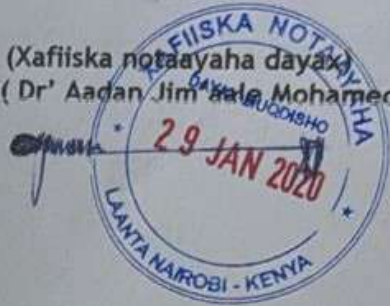 (Xafiiska notaayaha dayax)
( Dr' Aadan Jim'aale Mohamed
XAFIISKA NOTAAYAHA
DAYAX MUQDISHO
29 JAN 2020
LAANTA NAIROBI - KENYA